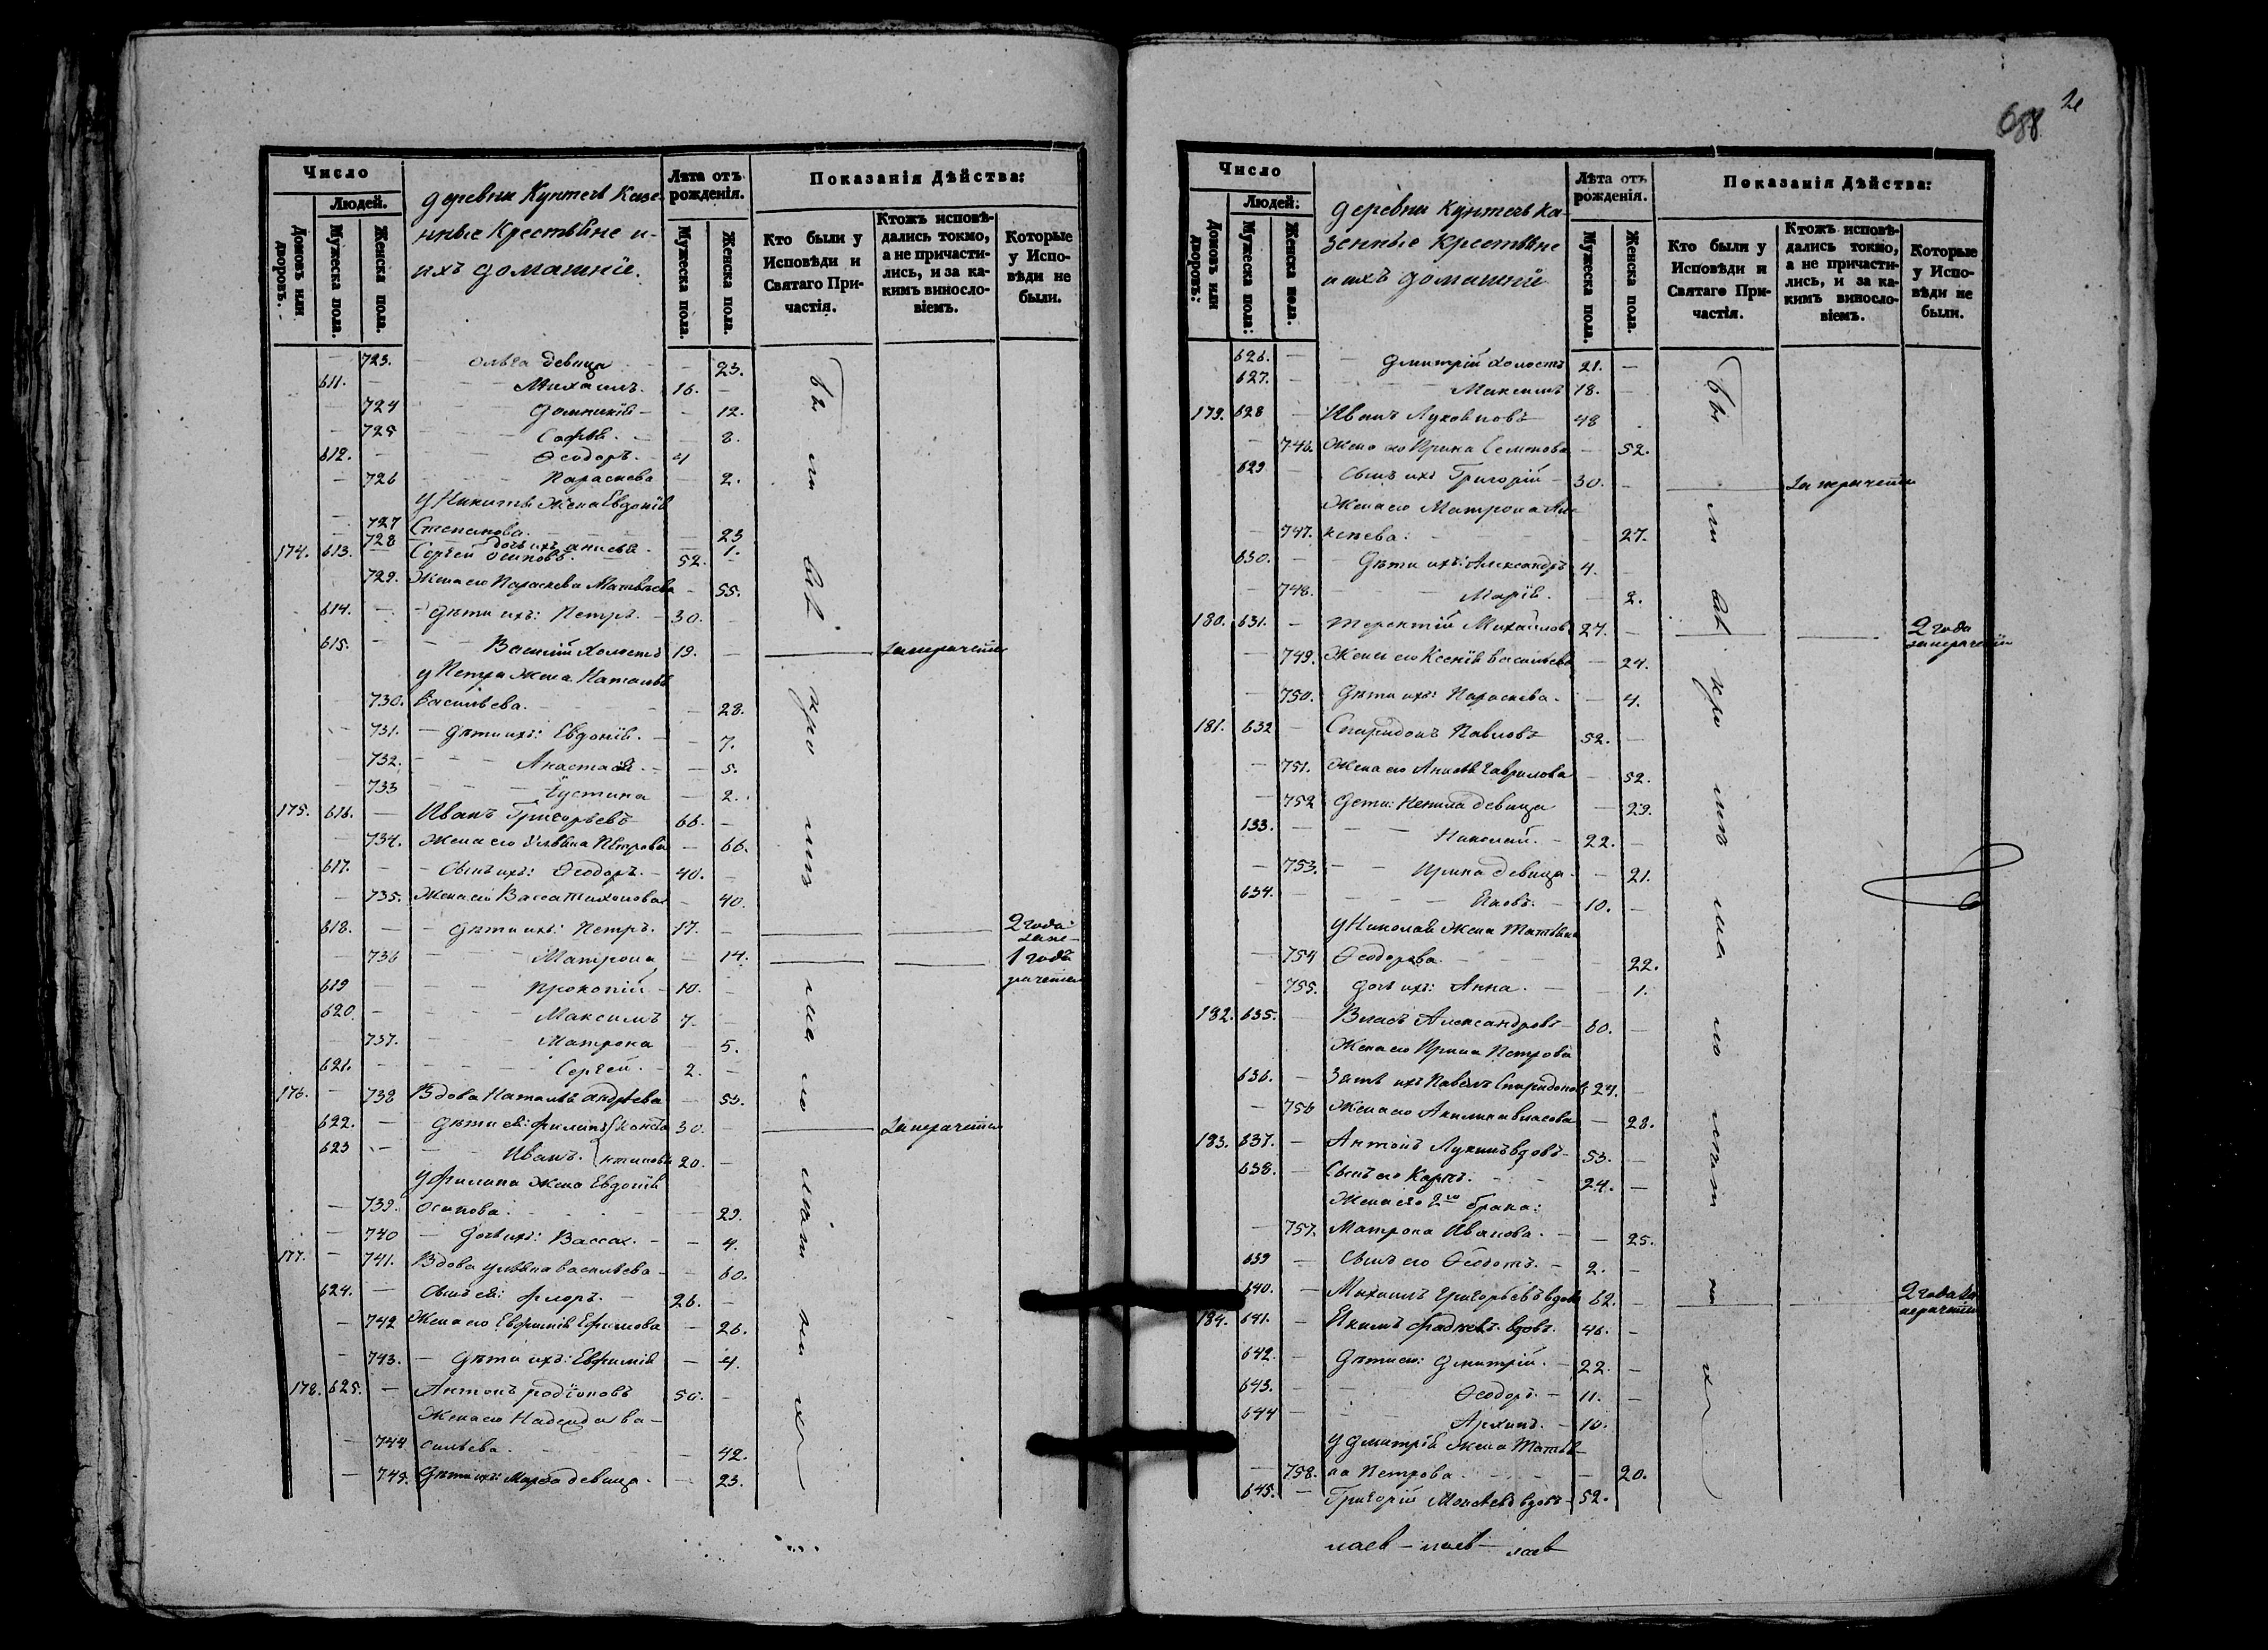 Число
Людей.
Домовъ или дворовъ.
Мужеска пола.
Женска пола.
деревни Кунтечь Казе-
нные Крестьяне и
ихъ домашніе.
Лѣта отъ рожденія.
Мужеска пола.
Женска пола.
Показанія Дѣйства:
Кто были у Исповѣди и Святаго Причастія.
Ктожъ исповѣдались токмо, а не причастились, и за какимъ винословіемъ.
Которые у Исповѣди не были.
723. Ольга девица 23.
611. Михаилъ. 16.
724 Домникія 12.
725 Софья. 8.
612. Ѳеодоръ. 4
726 Параскева 2.
у Никиты Жена Евдокія
727 Степанова. 23
728 дочь ихъ Анисья. 1.
174. 613. Сергей Осиповъ. 52.
729. Жена его Параскева Матвѣева 55.
614. Дѣти ихъ: Петръ. 30.
615. Василій Холостъ 19. за нерачениемъ
у Петра Жена Наталья
730. Васильева. 28.
731. Дѣти ихъ: Евдокія. 7.
732. Анастасія 5.
733 Іустина 2.
175. 616. Иванъ Григорьевъ 66.
734. Жена его Ульяна Петрова 66.
617. Сынъ ихъ: Ѳеодоръ. 40.
735. Жена его Васса Тихонова 40.
618. Дѣти ихъ: Петръ. 17. 2 года
736 Матрона 14. 1 годъ
619 Прокопій 10.
620. Максимъ 7.
737. Матрона 5.
621. Сергей. 2.
176. 738 Вдова Наталья Андреева 53.
622. Дѣти ея: Филипъ 30. за нерачениемъ
623 Иванъ. 20.
у Филипа Жена Евдокія
739. Осипова. 29.
740 Дочь ихъ: Васса. 4.
177. 741. Вдова Ульяна Васильева 60.
624. Сынъ ея: Флоръ. 26.
742 Жена его Евфимія Ефимова 26.
743. Дѣти ихъ: Евфимія 4.
178. 625. Антонъ Родіоновъ 50.
Жена его Надежда Ва-
744 сильева. 42.
745. Дѣти ихъ: Марѳа девица. 23.
688
Число
Людей:
Домовъ или дворовъ:
Мужеска пола:
Женска пола:
деревни Кунтечь Ка-
зенные Крестьяне
и ихъ домашніе
Лѣта отъ рожденія.
Мужеска пола.
Женска пола.
Показанія Дѣйства:
Кто были у Исповѣди и Святаго Причастія.
Ктожъ исповѣдались токмо, а не причастились, и за какимъ винословіемъ.
Которые у Исповѣди не были.
626. Дмитрій Холостъ 21.
627. Максимъ 18.
179. 628 Иванъ 48
746. Жена его Ирина Семенова 52.
629 Сынъ ихъ Григорій 30. за нерачениемъ
Жена его Матрона
747. 27.
630. Дѣти ихъ: Александръ 4.
748. Марія. 2.
180. 631. Терентій Михайловъ 27. 2 года
749. Жена его Ксенія Васильева 24.
750. Дѣти ихъ: Параскева. 4.
181. 632 Спиридонъ Павловъ 52.
751. Жена его Анисья Гаврилова 52.
752 Дети: девица 23.
133. Николай. 22.
753. Ирина девица 21.
634. Иаковъ. 10.
у Николая Жена Татьяна
754 Ѳеодорова. 22.
755. Дочь ихъ: Анна. 1.
182. 635. Власъ Александровъ 60.
Жена его Ирина Петрова
636. Зять ихъ Павелъ Спиридоновъ 27.
756 Жена его Акилина Власова 28.
183. 637. Антонъ Лукинъ вдовъ 53.
638. Сынъ его Карпъ. 24.
Жена его 2го брака:
757. Матрона Иванова. 25.
639 Сынъ его Ѳеодотъ. 2.
640. Михаилъ Григорьевъ вдовъ 62. 2 года за
нерачениемъ
184. 641. Екимъ Фадѣевъ вдовъ. 46.
642. Дѣти его: Дмитрій. 22.
643. Ѳеодоръ. 11.
644 Архипъ. 10.
у Дмитрія Жена Татья-
758. на Петрова. 20.
645. Григорій Моисѣевъ вдовъ 52.